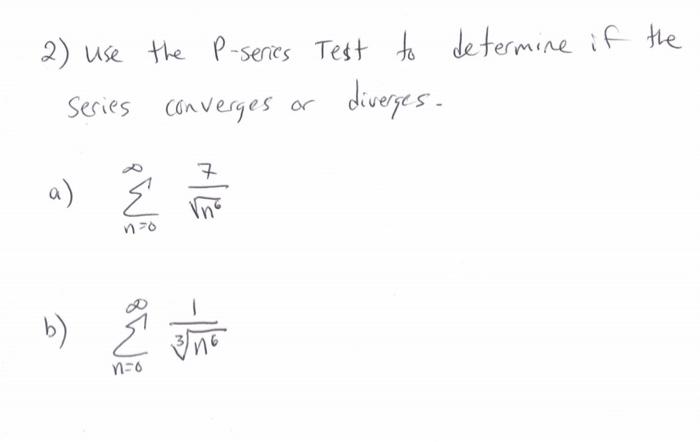 2) use the P-series Test to determine if the
Series converges or diverges.
a) ∞ Σ n=0 7/√n⁶
b) ∞ Σ n=0 1/∛n⁶